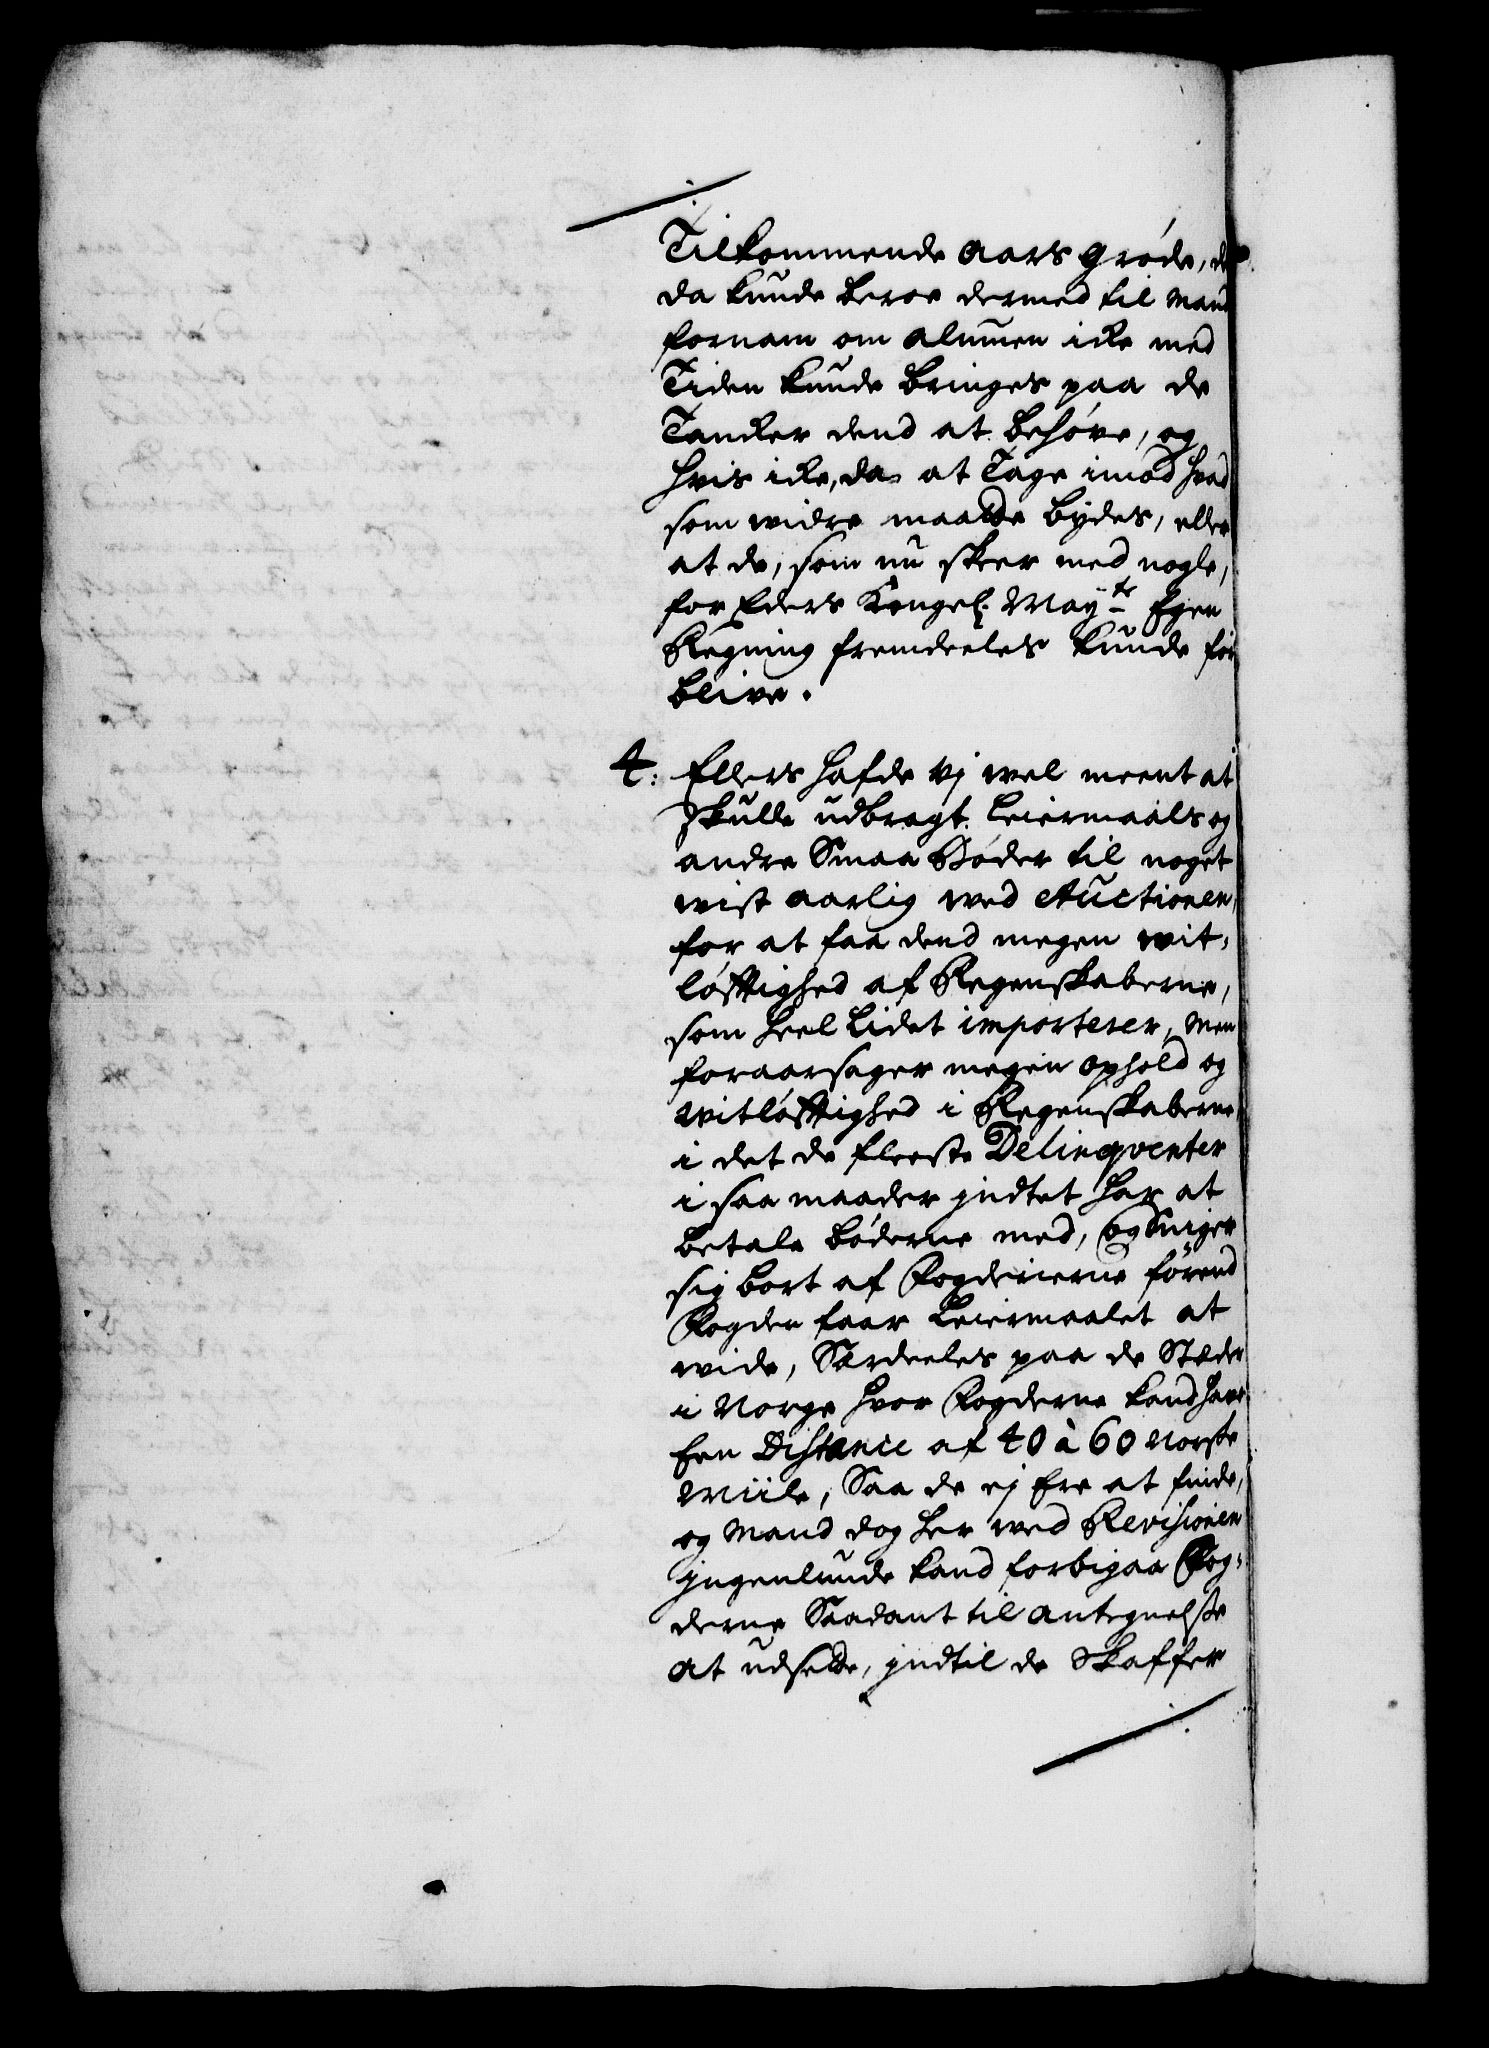 Tilkommende aars grøde, de
da kunde beroe dermed til Mand
fornam om almuen icke med
Tiden kunde bringes paa de
Tancker dend at behøve, og
hvis icke, da at Tage imod hvad
som widre maatte bydes, eller
at de, som nu skeer med nogle,
for Eders Kongel: May:tz Egen
Regning fremdeeles kunde for
blive.
4: Ellers hafde vj wel meent at
skulle udbragt Leiermaals og
andre Smaa Bøder til noget
wist aarlig wed Auctionen,
for at faa dend megen wit,
løfftighed af Regenskaberne,
som heel Lidet importerer, Men
foraarsager megen ophold og
witløfftighed i Regenskaberne
i det de fleeste Delinqventer
i saa maader jndtet har at
betale bøderne med, og Sniger
sig bort af Fogderierne førend
Fogden faar Leiermaalet at
wide, Særdeeles paa de Stæder
i Norge hvor Fogderne kand have
Een Distance af 40 à 60 Norske
Miile, Saa de ej Ere at finde,
og Mand dog her wed Revisionen
jngenlunde kand forbigaa Fog,
derne Saadant til antegnelse
at udsette, jndtil de Skaffer